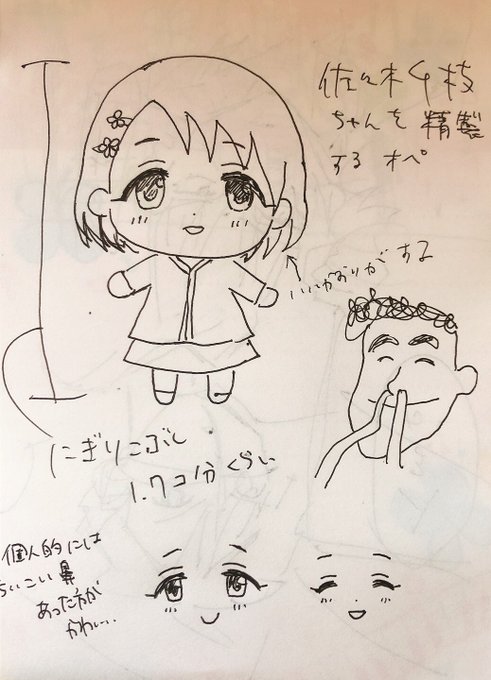 佐々木千枝
ちゃんを精製
するオペ
いいかおりがする
にぎりこぶし
1.7コ分くらい
個人的には
ちいこい鼻
あった方が
かわいい…